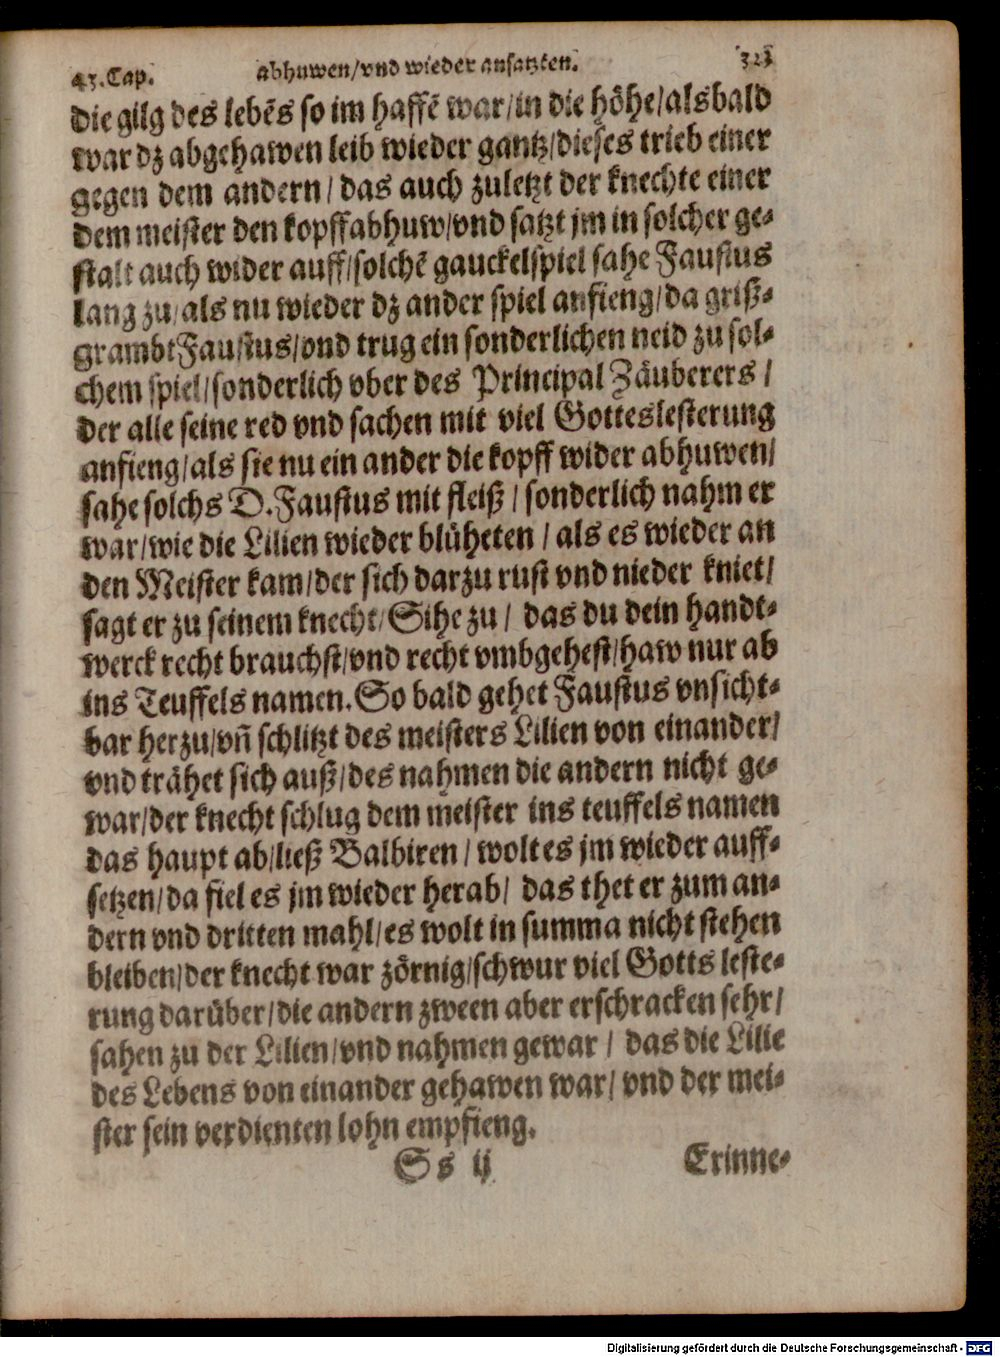 43.Cap. abhuwen/vnd wieder ansatzten. 323
die gilg des lebēs so im haffē war/in die höhe/alsbald
war dz abgehawen leib wieder gantz/dieses trieb einer
gegen dem andern/ das auch zuletzt der knechte einer
dem meister den kopff abhuw/vnd satzt jm in solcher ge-
stalt auch wider auff/solchē gauckelspiel sahe Faustus
lang zu/als nu wieder dz ander spiel anfieng/da griß-
grambt Faustus/vnd trug ein sonderlichen neid zu sol-
chem spiel/sonderlich vber des Principal Zäuberers/
der alle seine red vnd sachen mit viel Gotteslesterung
anfieng/als sie nu ein ander die kopff wider abhuwen/
sahe solchs D.Faustus mit fleiß/ sonderlich nahm er
war/wie die Lilien wieder blüheten/ als es wieder an
den Meister kam/der sich darzu rust vnd nieder kniet/
sagt er zu seinem knecht/Sihe zu/ das du dein handt-
werck recht brauchst/vnd recht vmbgehest/haw nur ab
ins Teuffels namen.So bald gehet Faustus vnsicht-
bar herzu/vñ schlitzt des meisters Lilien von einander/
vnd trähet sich auß/des nahmen die andern nicht ge-
war/der knecht schlug dem meister ins teuffels namen
das haupt ab/ließ Balbiren/ wolt es jm wieder auff-
setzen/da fiel es jm wieder herab/ das thet er zum an-
dern vnd dritten mahl/es wolt in summa nicht stehen
bleiben/der knecht war zörnig/schwur viel Gotts leste-
rung darüber/die andern zween aber erschracken sehr/
sahen zu der Lilien/vnd nahmen gewar/ das die Lilie
des Lebens von einander gehawen war/ vnd der mei-
ster sein verdienten lohn empfieng.
Ss ij Erinne-
Digitalisierung gefördert durch die Deutsche Forschungsgemeinschaft - DFG